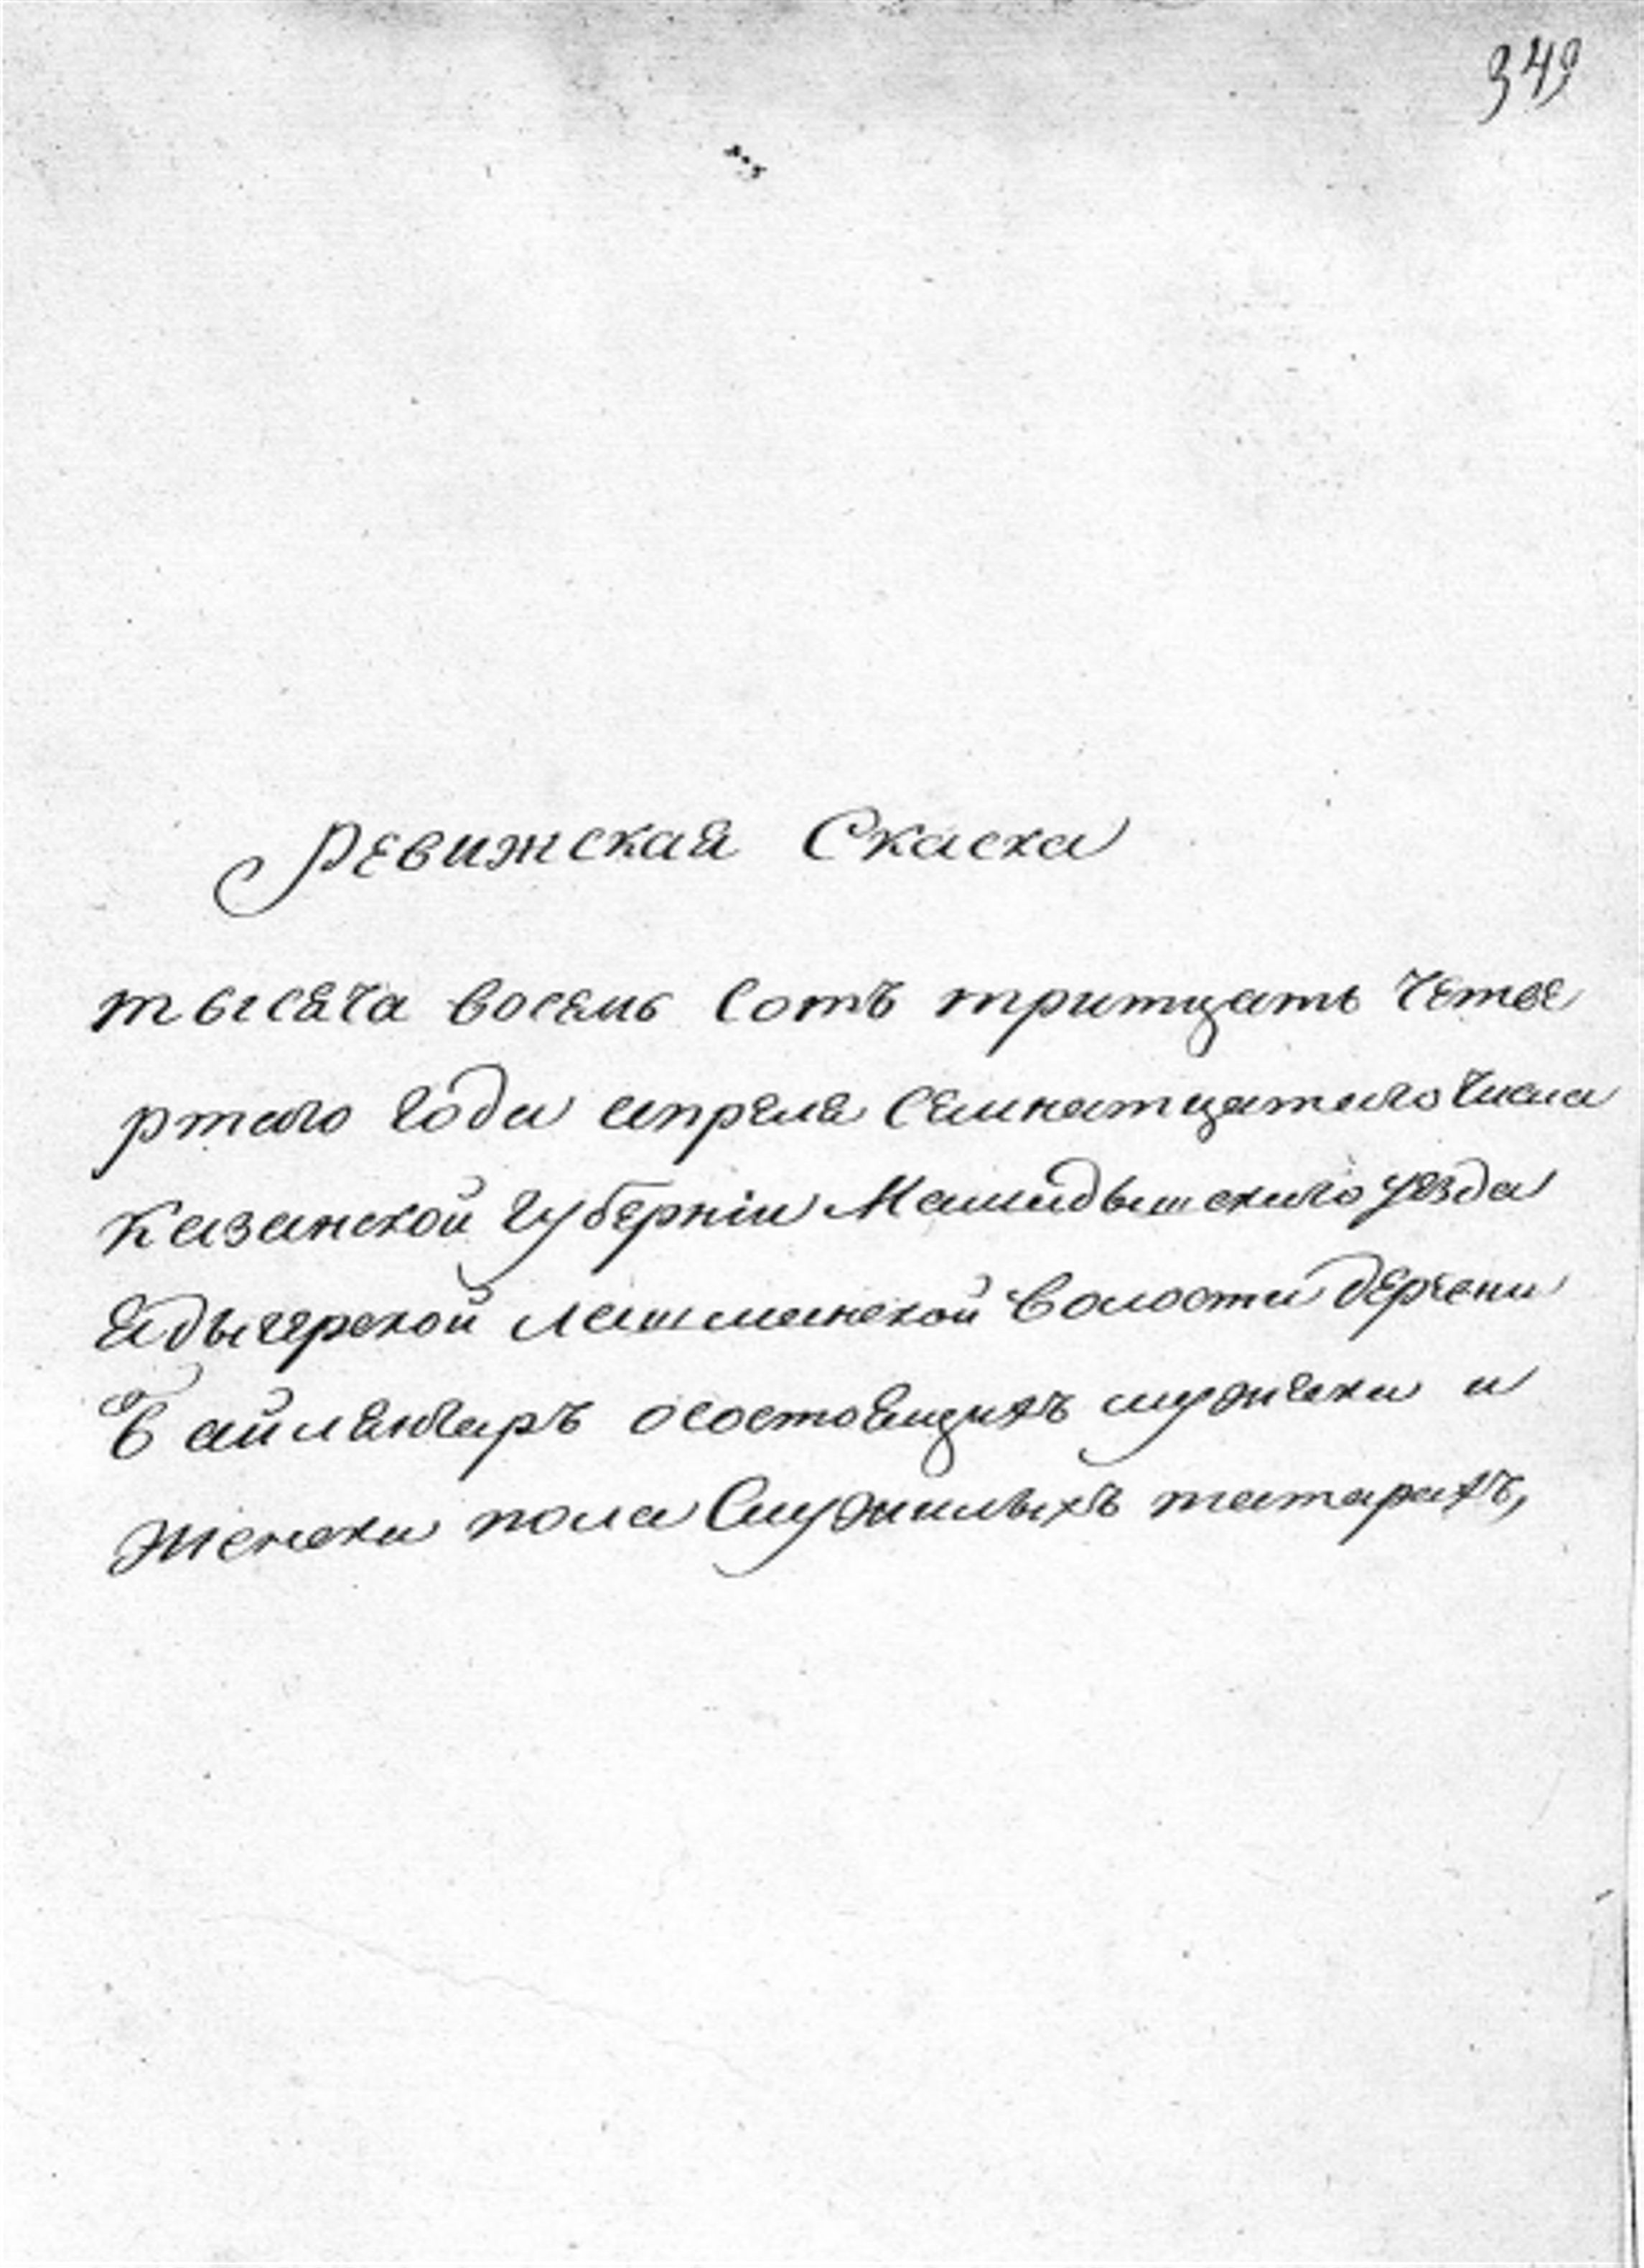 349
Ревижская Скаска
тысяча восемь сотъ тритцать четве
ртаго года апреля семнатцатаго числа
казанской губерніи Мамадышскаго уезда
ядыгерской лашманской волости деревни
байлянгаръ осостоящихъ мужска и
женска пола Служилыхъ татарахъ,